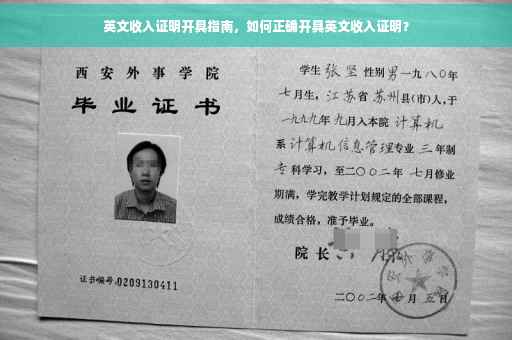 英文收入证明开具指南，如何正确开具英文收入证明？
西安外事学院
毕业证书
证书编号:0209130411
学生 张坚 性别男一九八〇年
七月生，江苏省 苏州县(市)人,于
一九九九年 九月入本院 计算机
系 计算机信息管理专业 三 年制
专 科学习，至二〇〇二年 七月修业
期满，学完教学计划规定的全部课程，
成绩合格，准予毕业。
院长
二〇〇二年 七 月 五 日